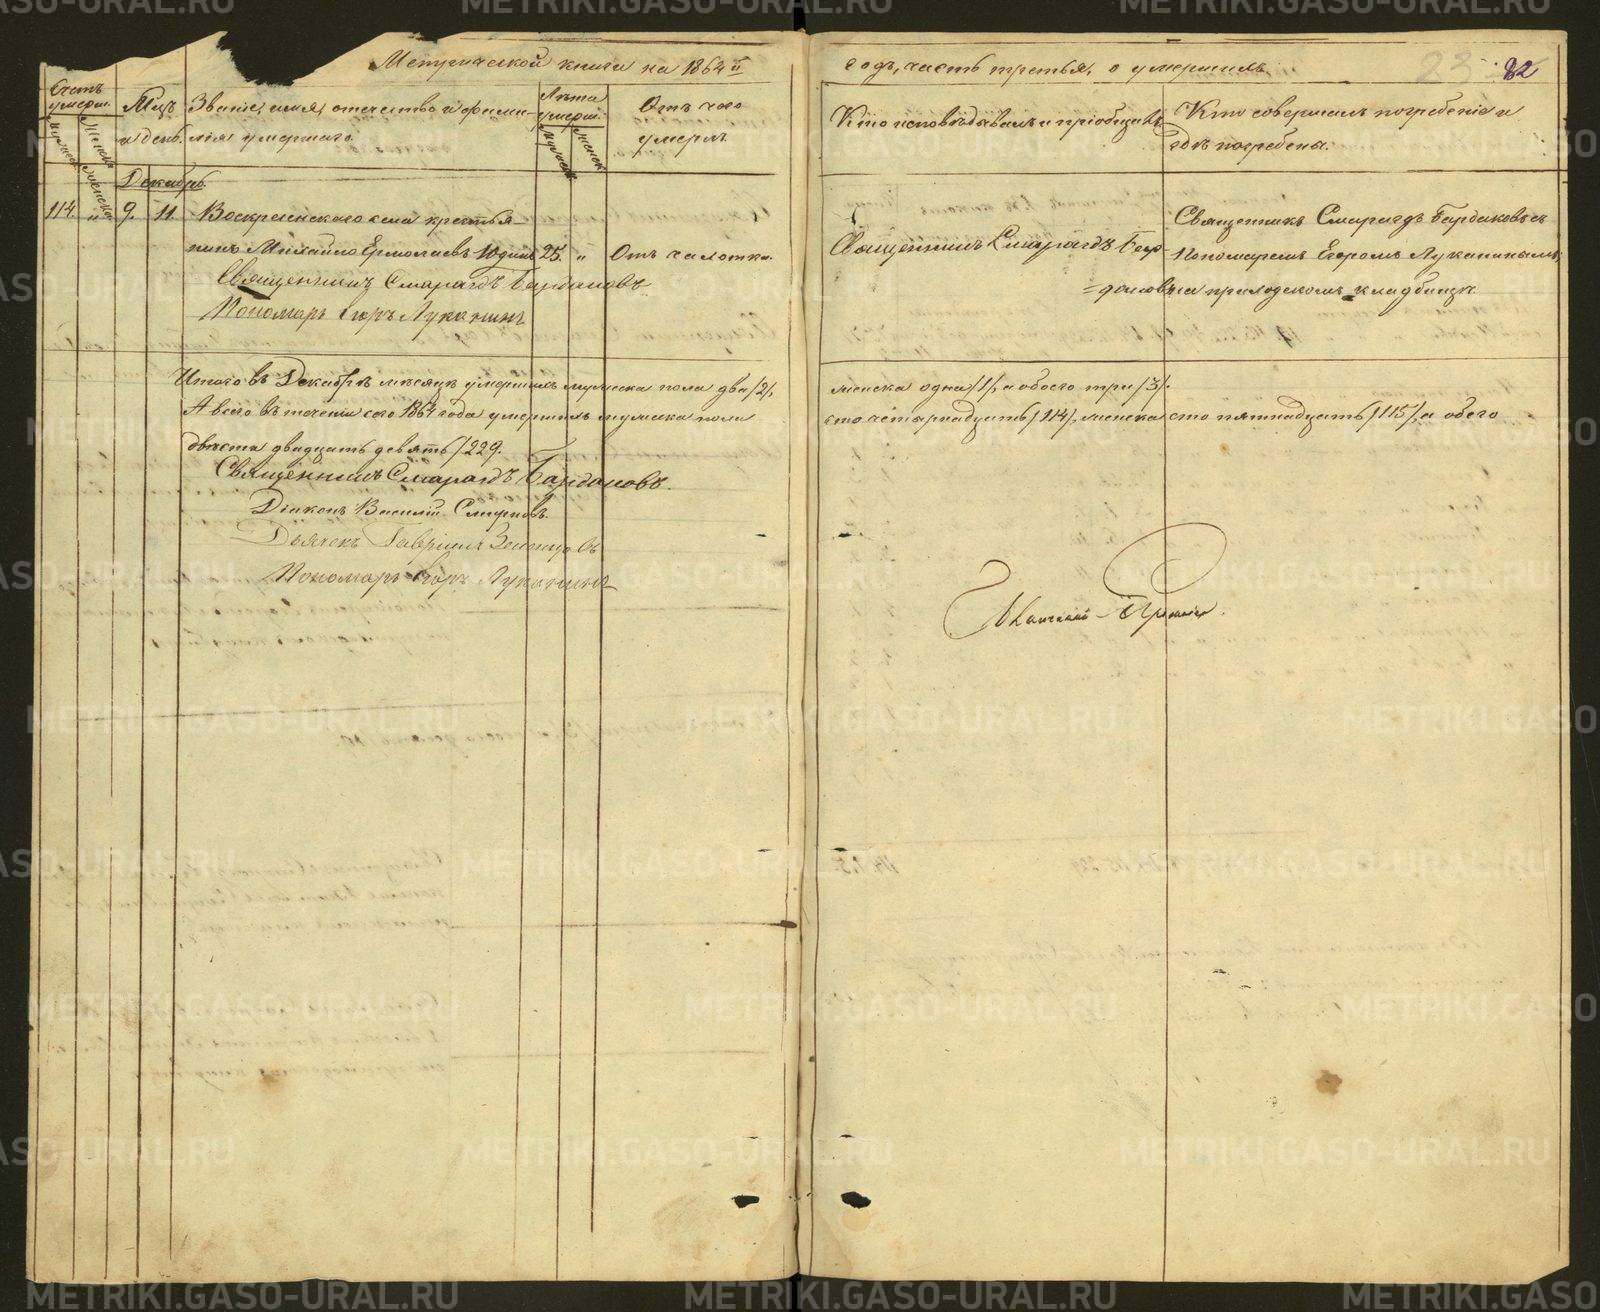 Метрической книги на 1864й
годъ, часть третья, о умершихъ
82
Счетъ умерш.
Мцъ и день.
Званіе, имя, отчество и фамилія умершаго.
Лѣта умерш.
Отъ чего умеръ.
Кто исповѣдывалъ и пріобщалъ.
Кто совершалъ погребеніе и гдѣ погребены.
мужеска
женска
мужеск
женск
Декабрь.
114. " 9. 11. Воскресенскаго села крестья-
нинъ Михайло Ермолаевъ 25. " Отъ чахотки.
Священникъ Смарагдъ Бардаковъ
Пономарь Егоръ Луканинъ
Священникъ Смарагдъ Бар-
=даковъ
Священникъ Смарагдъ Бардаковъ съ
Пономаремъ Егоромъ Луканинымъ,
на приходскомъ кладбищѣ.
Итого въ Декабрѣ мѣсяцѣ умершихъ мужеска пола два /2/, женска одна /1/, а обоего три /3/.
А всего въ теченіи сего 1864 года умершихъ мужеска пола сто четырнадцать /114/, женска сто пятнадцать /115/, а обоего
двѣсти двадцать девять /229.
Священникъ Смарагдъ Бардаковъ.
Діаконъ Василій Смирновъ.
Дьячекъ Гавріилъ
Пономарь Егоръ Луканинъ
METRIKI.GASO-URAL.RU